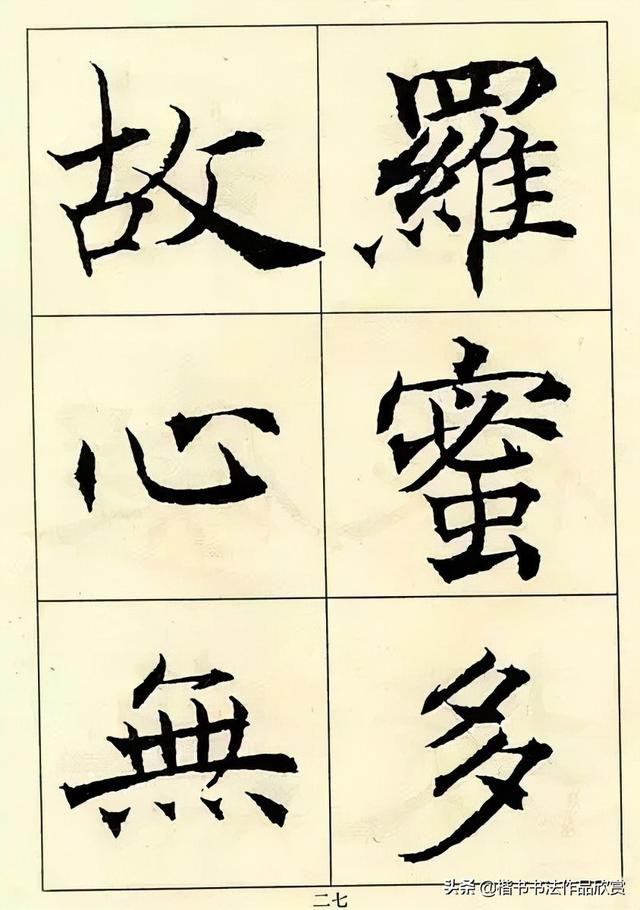 羅蜜多
故心無
二七
头条@楷书书法作品欣赏